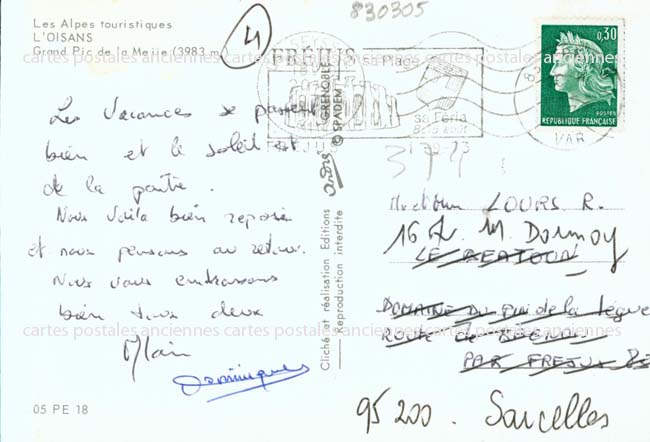 Les Alpes touristiques
L'OISANS
Grand Pic de la Meije (3983 m)
4
830305
FRÉJUS sa Plage
sa Feria
0,30
POSTES
REPUBLIQUE FRANÇAISE
VAR
cartes postales anciennes cartes postales anciennes cartes postales anciennes
Les Vacances se passent
bien et le soleil est
de la partie.
Nous voila bien reposés
et nous pensons au retour.
Nous vous embrassons
bien tous deux
Alain
Dominique
05 PE 18
GRENOBLE
© SPADEM
andré
Cliché et réalisation Editions
Reproduction interdite
LOURS R.
16 Av. M. Dormoy
DOMAINE DU de la
Route de
PAR FREJUS 83
95200. Sarcelles
cartes postales anciennes cartes postales anciennes cartes postales anciennes